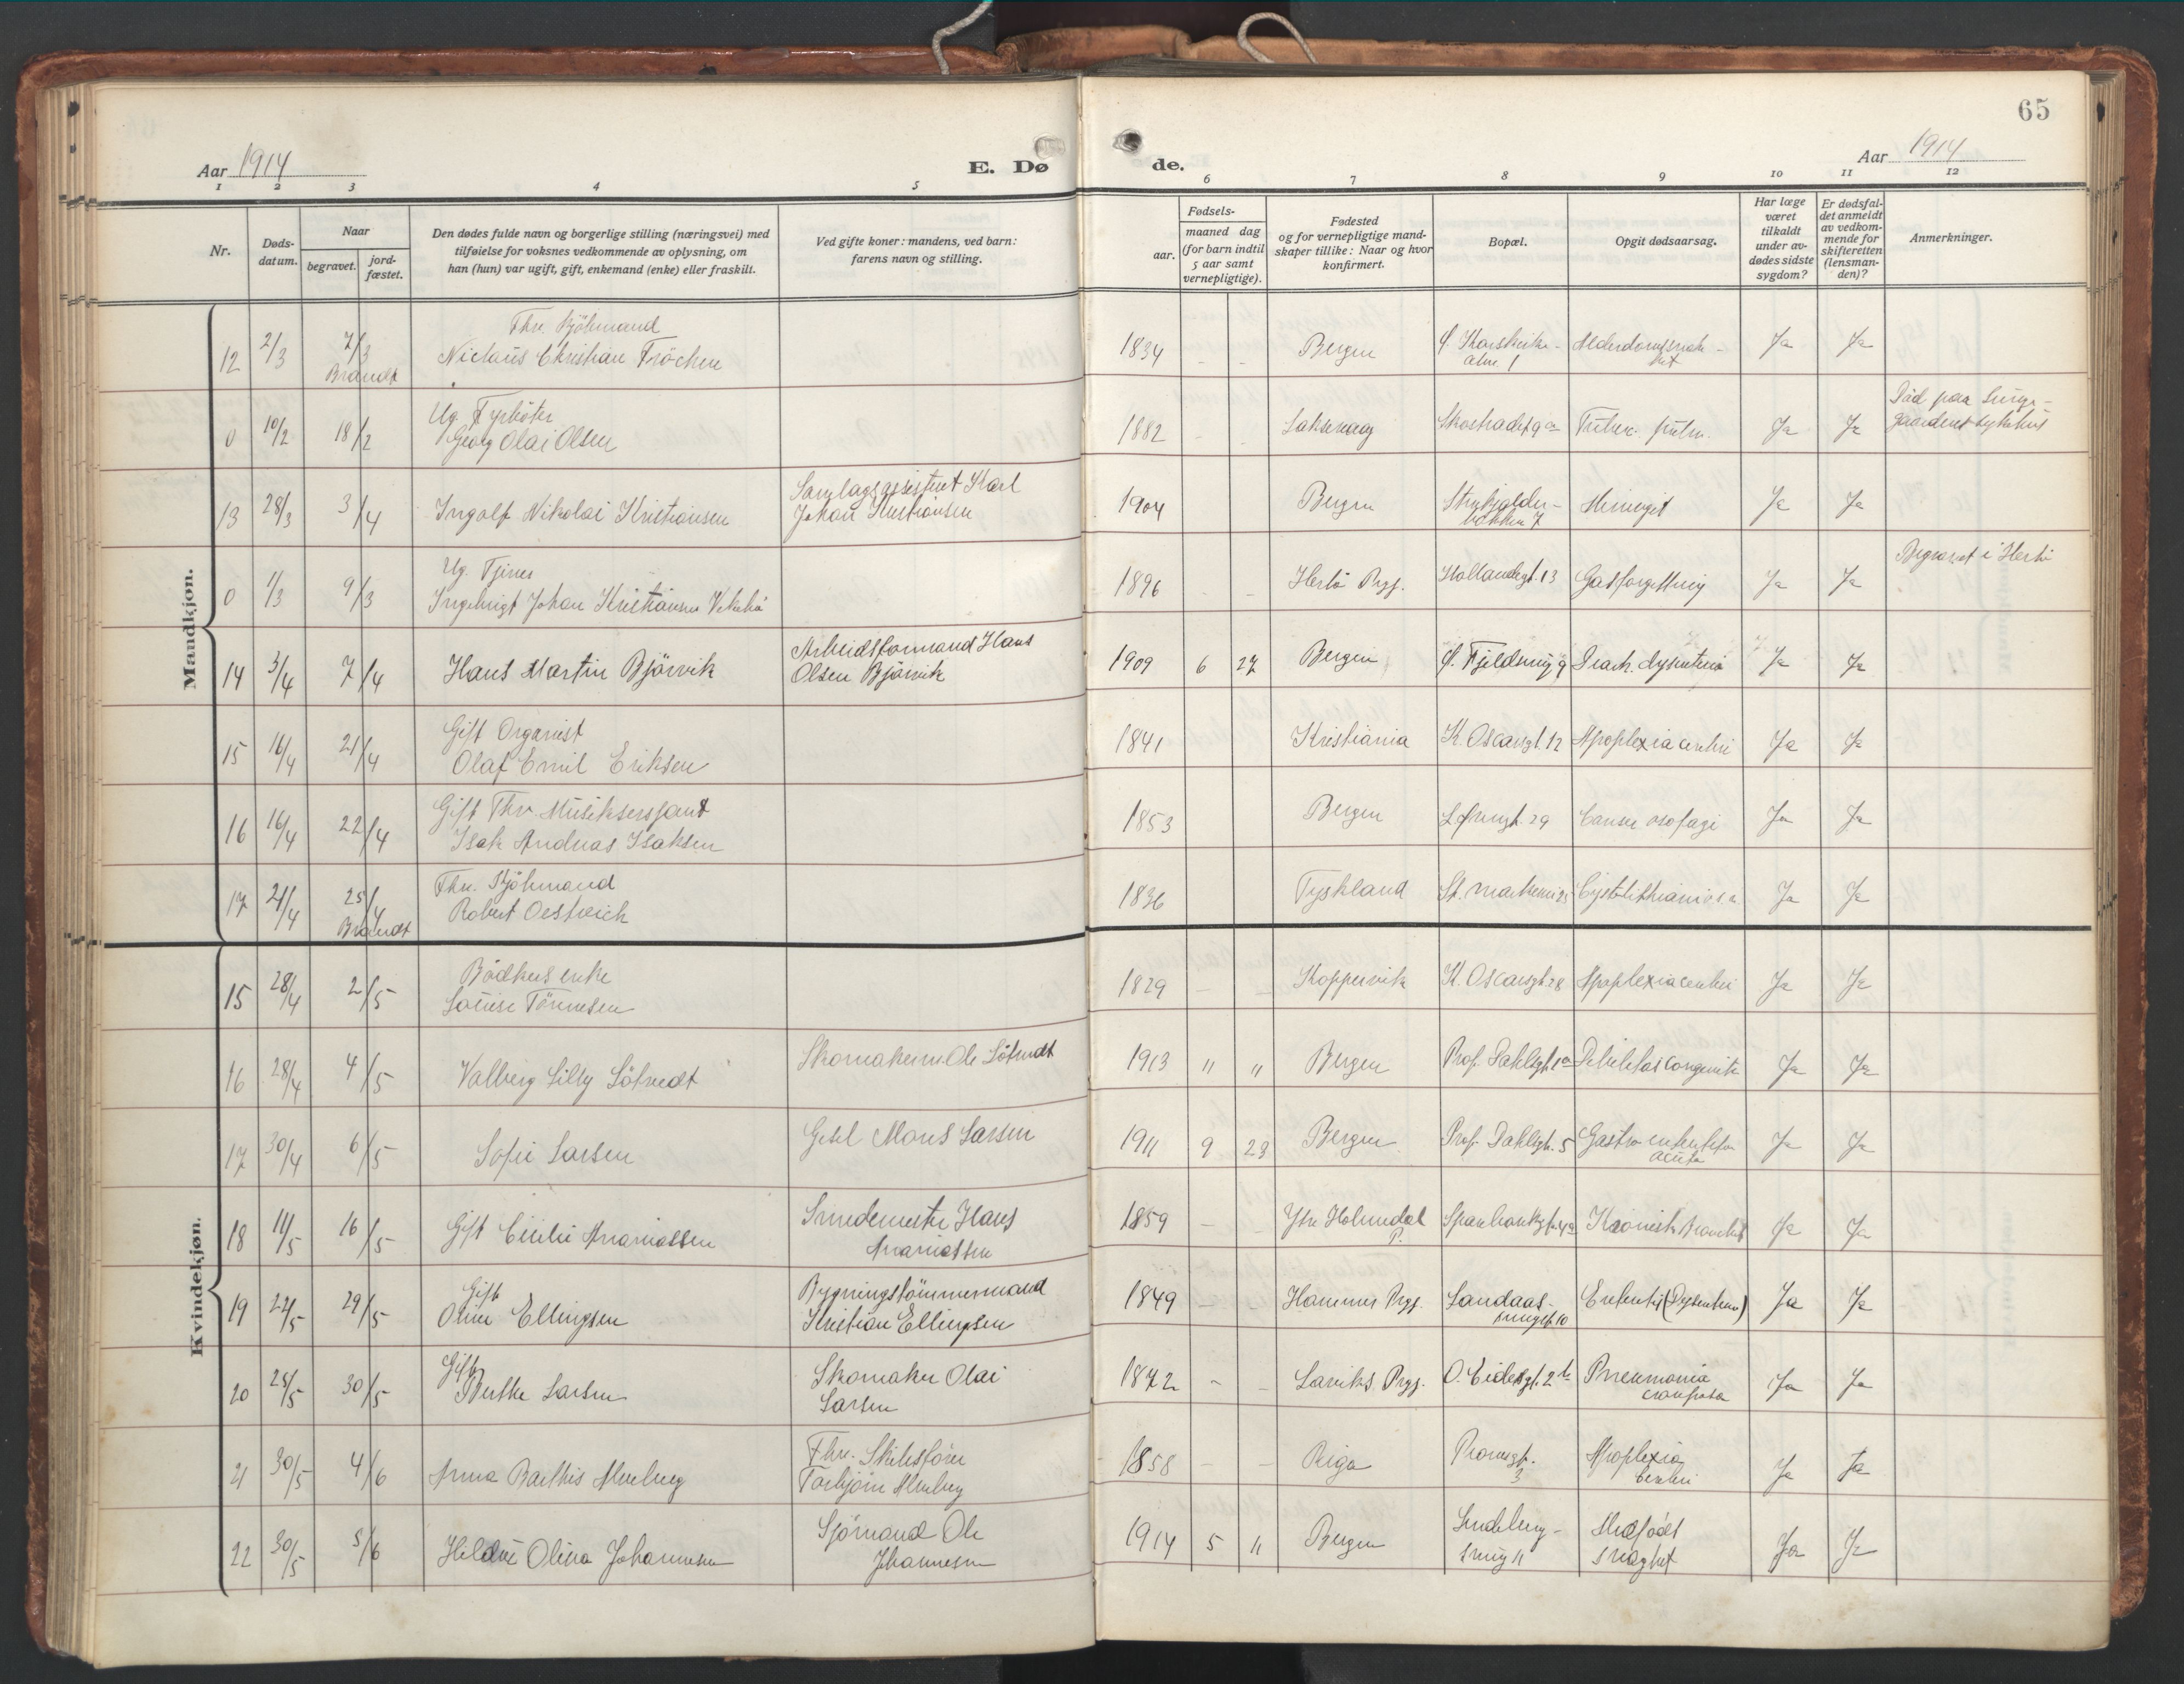 65
Aar 1914
E. Dø
de.
Aar 1914
1 2 3 4 5 6 7 8 9 10 11 12
Nr.
Døds-
datum.
Naar
begravet.
jord-
fæstet.
Den dødes fulde navn og borgerlige stilling (næringsvei) med
tilføielse for voksnes vedkommende av oplysning, om
han (hun) var ugift, gift, enkemand (enke) eller fraskilt.
Ved gifte koner: mandens, ved barn:
farens navn og stilling.
Fødsels-
aar.
maaned dag
(for barn indtil
5 aar samt
vernepligtige).
Fødested
og for vernepligtige mand-
skaper tillike: Naar og hvor
konfirmert.
Bopæl.
Opgit dødsaarsag.
Har læge
været
tilkaldt
under av-
dødes sidste
sygdom?
Er dødsfal-
det anmeldt
av vedkom-
mende for
skifteretten
(lensman-
den)?
Anmerkninger.
Mandkjøn.
12 2/3 7/3 Brandt
Fhv. Kjöbmand
Niclaus Christian Fröchen
1834 - - Bergen alm. 1 Ja Ja
0 10/2 18/2
Ug. Fyrböter
Georg Olai Olsen
1882 - - Laksevaag Tuberc. pulm. Ja Ja
13 28/3 3/4
Ingolf Nikolai Kristiansen
Karl
Johan Kristiansen
1904 Bergen bakken 7 Meningit Ja Ja
0 1/3 9/3
Ug. Tjener
Ingebrigt Johan Kristiansen
1896 - - Herlö Prgj. Hollandergt. 13 Gasforgiftning Ja Ja
Begravet i Herlö
14 3/4 7/4
Hans Martin Bjørvik
Arbeidsformand Hans
Olsen Bjørvik
1909 6 27 Bergen Ø. Fjeldsmug 9 dysenteria Ja Ja
15 16/4 21/4
Gift Organist
Olaf Emil Eriksen
1841 Kristiania K. Oscarsgt. 12 Apoplexia cerebri Ja Ja
16 16/4 22/4
Gift Fhv. Musiksersjant
Isak Andreas Isaksen
1853 Bergen Cancer osofagi Ja Ja
17 21/4 25/4 Brandt
Fhv. Kjöbmand
Robert Oestreich
1836 Tyskland Ja Ja
Kvindekjøn.
15 28/4 2/5
Bödkers enke
Louise Tönnesen
1829 - - Koppervik K. Oscarsgt 28 Apoplexia cerebri Ja Ja
16 28/4 4/5
Valberg Lilly Sötvedt
Skomakerm. Ole Sötvedt
1913 11 11 Bergen Prof. Dahlsgt. Debilitas congenita Ja Ja
17 30/4 6/5
Sofie Larsen
Mons Larsen
1911 9 28 Bergen Prof. Dahlsgt. 5 Gastro
acuta Ja Ja
18 11/5 16/5
Gift Cecilie Ananiassen
Smedemester Hans
Ananiassen
1859 - - Ytre Holmedal
P. Kronisk Bronchit Ja Ja
19 22/5 29/5
Gift
Oline Ellingsen
Bygningstömmermand
Kristian Ellingsen
1849 - - Hammer Prgj. Landaas-
svingst. 10 Enterit (Dysenteri) Ja Ja
20 25/5 30/5
Gift
Berthe Larsen
Skomaker Olai
Larsen
1872 - - Laviks Prgj. O. Eidesgt. 2 b Pneumonia
crouposa Ja Ja
21 30/5 4/6
Anna Almberg
Fhv. Skibsförer
Torbjörn Almberg
1858 - - Riga 3 Apoplexia
cerebri Ja Ja
22 30/5 5/6
Olina Johannesen
Sjömand Ole
Johannesen
1914 5 11 Bergen
smug 11 Medfödt
svaghet Ja Ja